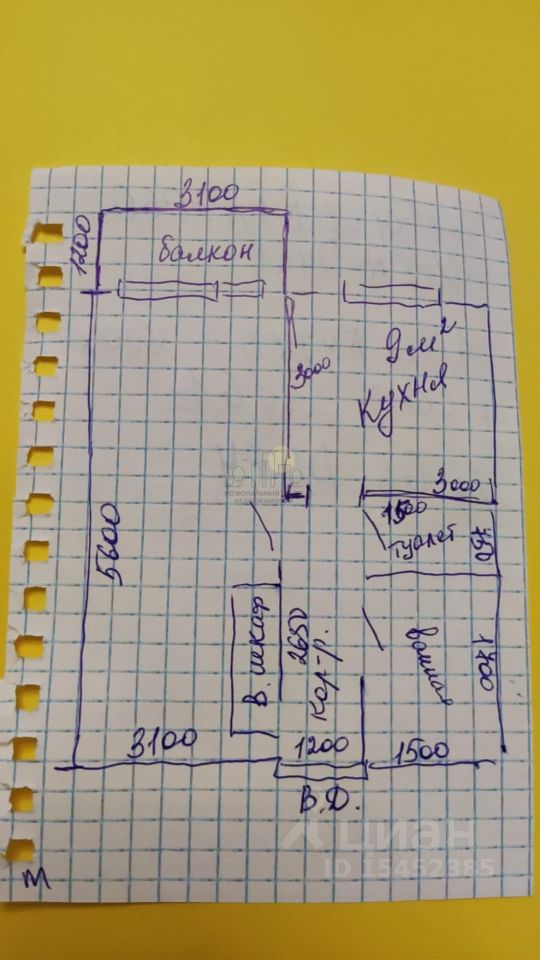 3100
1200
балкон
9м²
кухня
3000
3000
1500
туалет
760
5600
В. шкаф
2650
кор-р.
ванная
1700
3100
1200
1500
В.Д.
м
РЕГИОНАЛЬНЫЙ
НЕДВИЖИМО
циан
ID 15452385